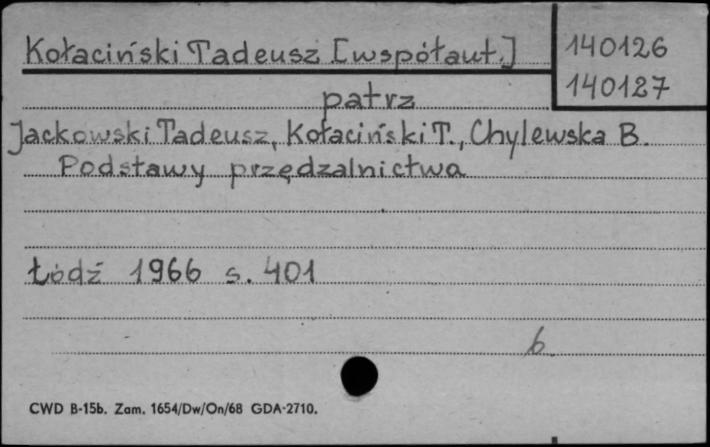 Kołaciński Tadeusz [współaut.]
140126
140127
patrz
Jackowski Tadeusz, Kołaciński T., Chylewska B.
Podstawy przędzalnictwa
Łódź 1966 s. 401
b
CWD B-15b. Zam. 1654/Dw/On/68 GDA-2710.